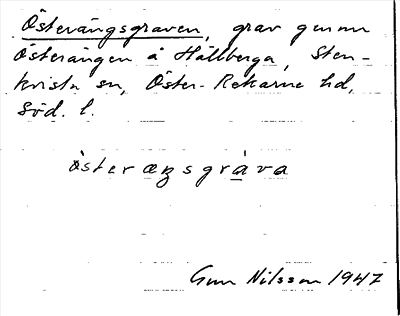 Österängsgraven, grav genom
Österängen å Hällberga, Sten-
kvista sn, Öster-Rekarne hd,
Söd. l.
österæŋsgràva
Gun Nilsson 1947